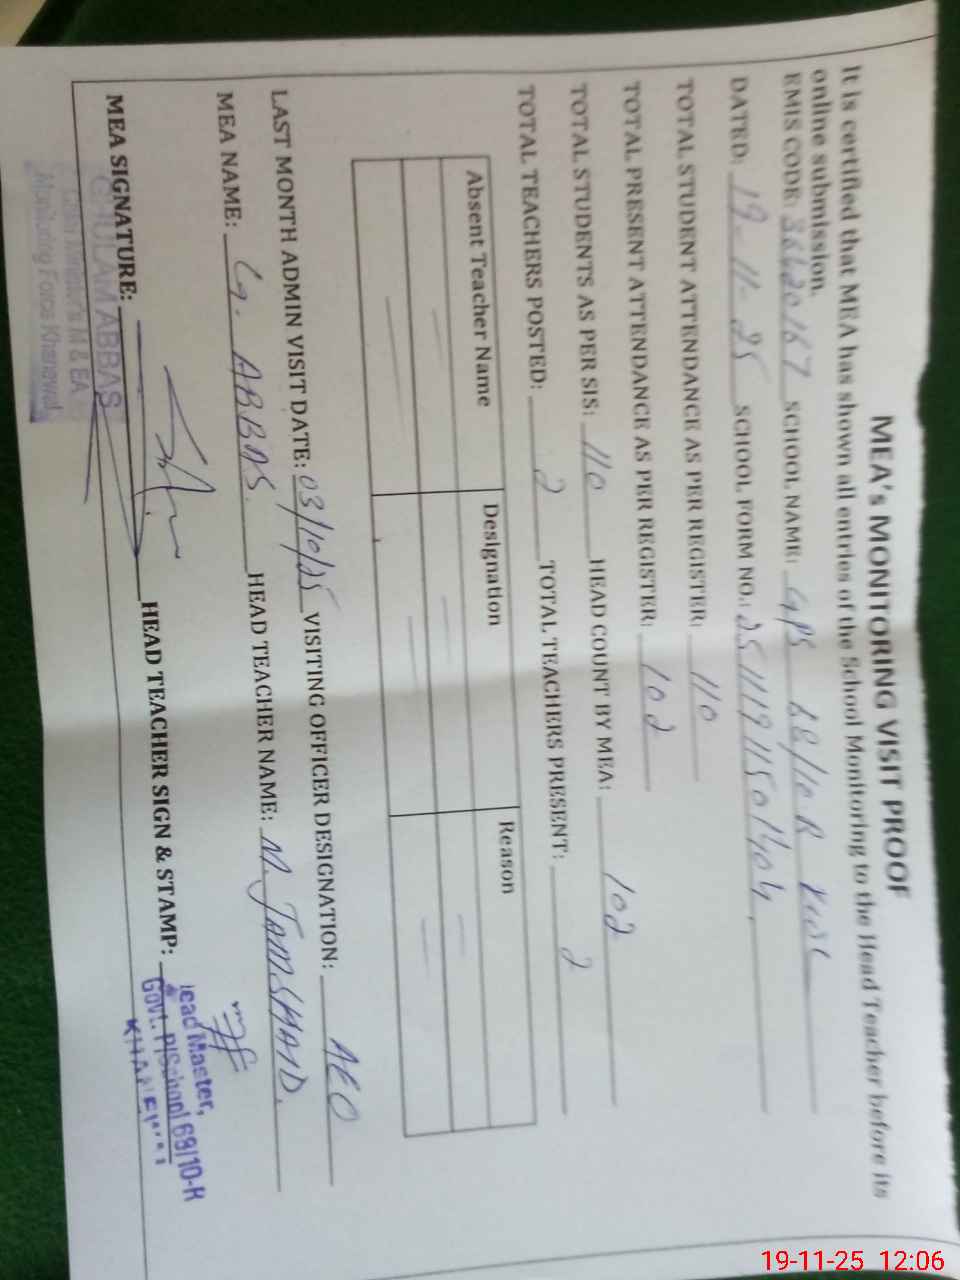 MEA's MONITORING VISIT PROOF
It is certified that MEA has shown all entries of the School Monitoring to the Head Teacher before its
online submission.
EMIS CODE: 36620167 SCHOOL NAME: GPS 68/10R
DATED: 19-11-25 SCHOOL FORM NO.: 25111911501404
TOTAL STUDENT ATTENDANCE AS PER REGISTER: 110
TOTAL PRESENT ATTENDANCE AS PER REGISTER: 102
TOTAL STUDENTS AS PER SIS: 110 HEAD COUNT BY MEA: 102
TOTAL TEACHERS POSTED: 2 TOTAL TEACHERS PRESENT: 2
Absent Teacher Name Designation Reason
LAST MONTH ADMIN VISIT DATE: 03/10/25 VISITING OFFICER DESIGNATION: AEO
MEA NAME: G. ABBAS. HEAD TEACHER NAME: M. JAMSHAID.
MEA SIGNATURE: HEAD TEACHER SIGN & STAMP:
GHULAM ABBAS
M & EA
Monitoring Force Khanewal
Head Master,
Govt. P/School 68/10-R
19-11-25 12:06